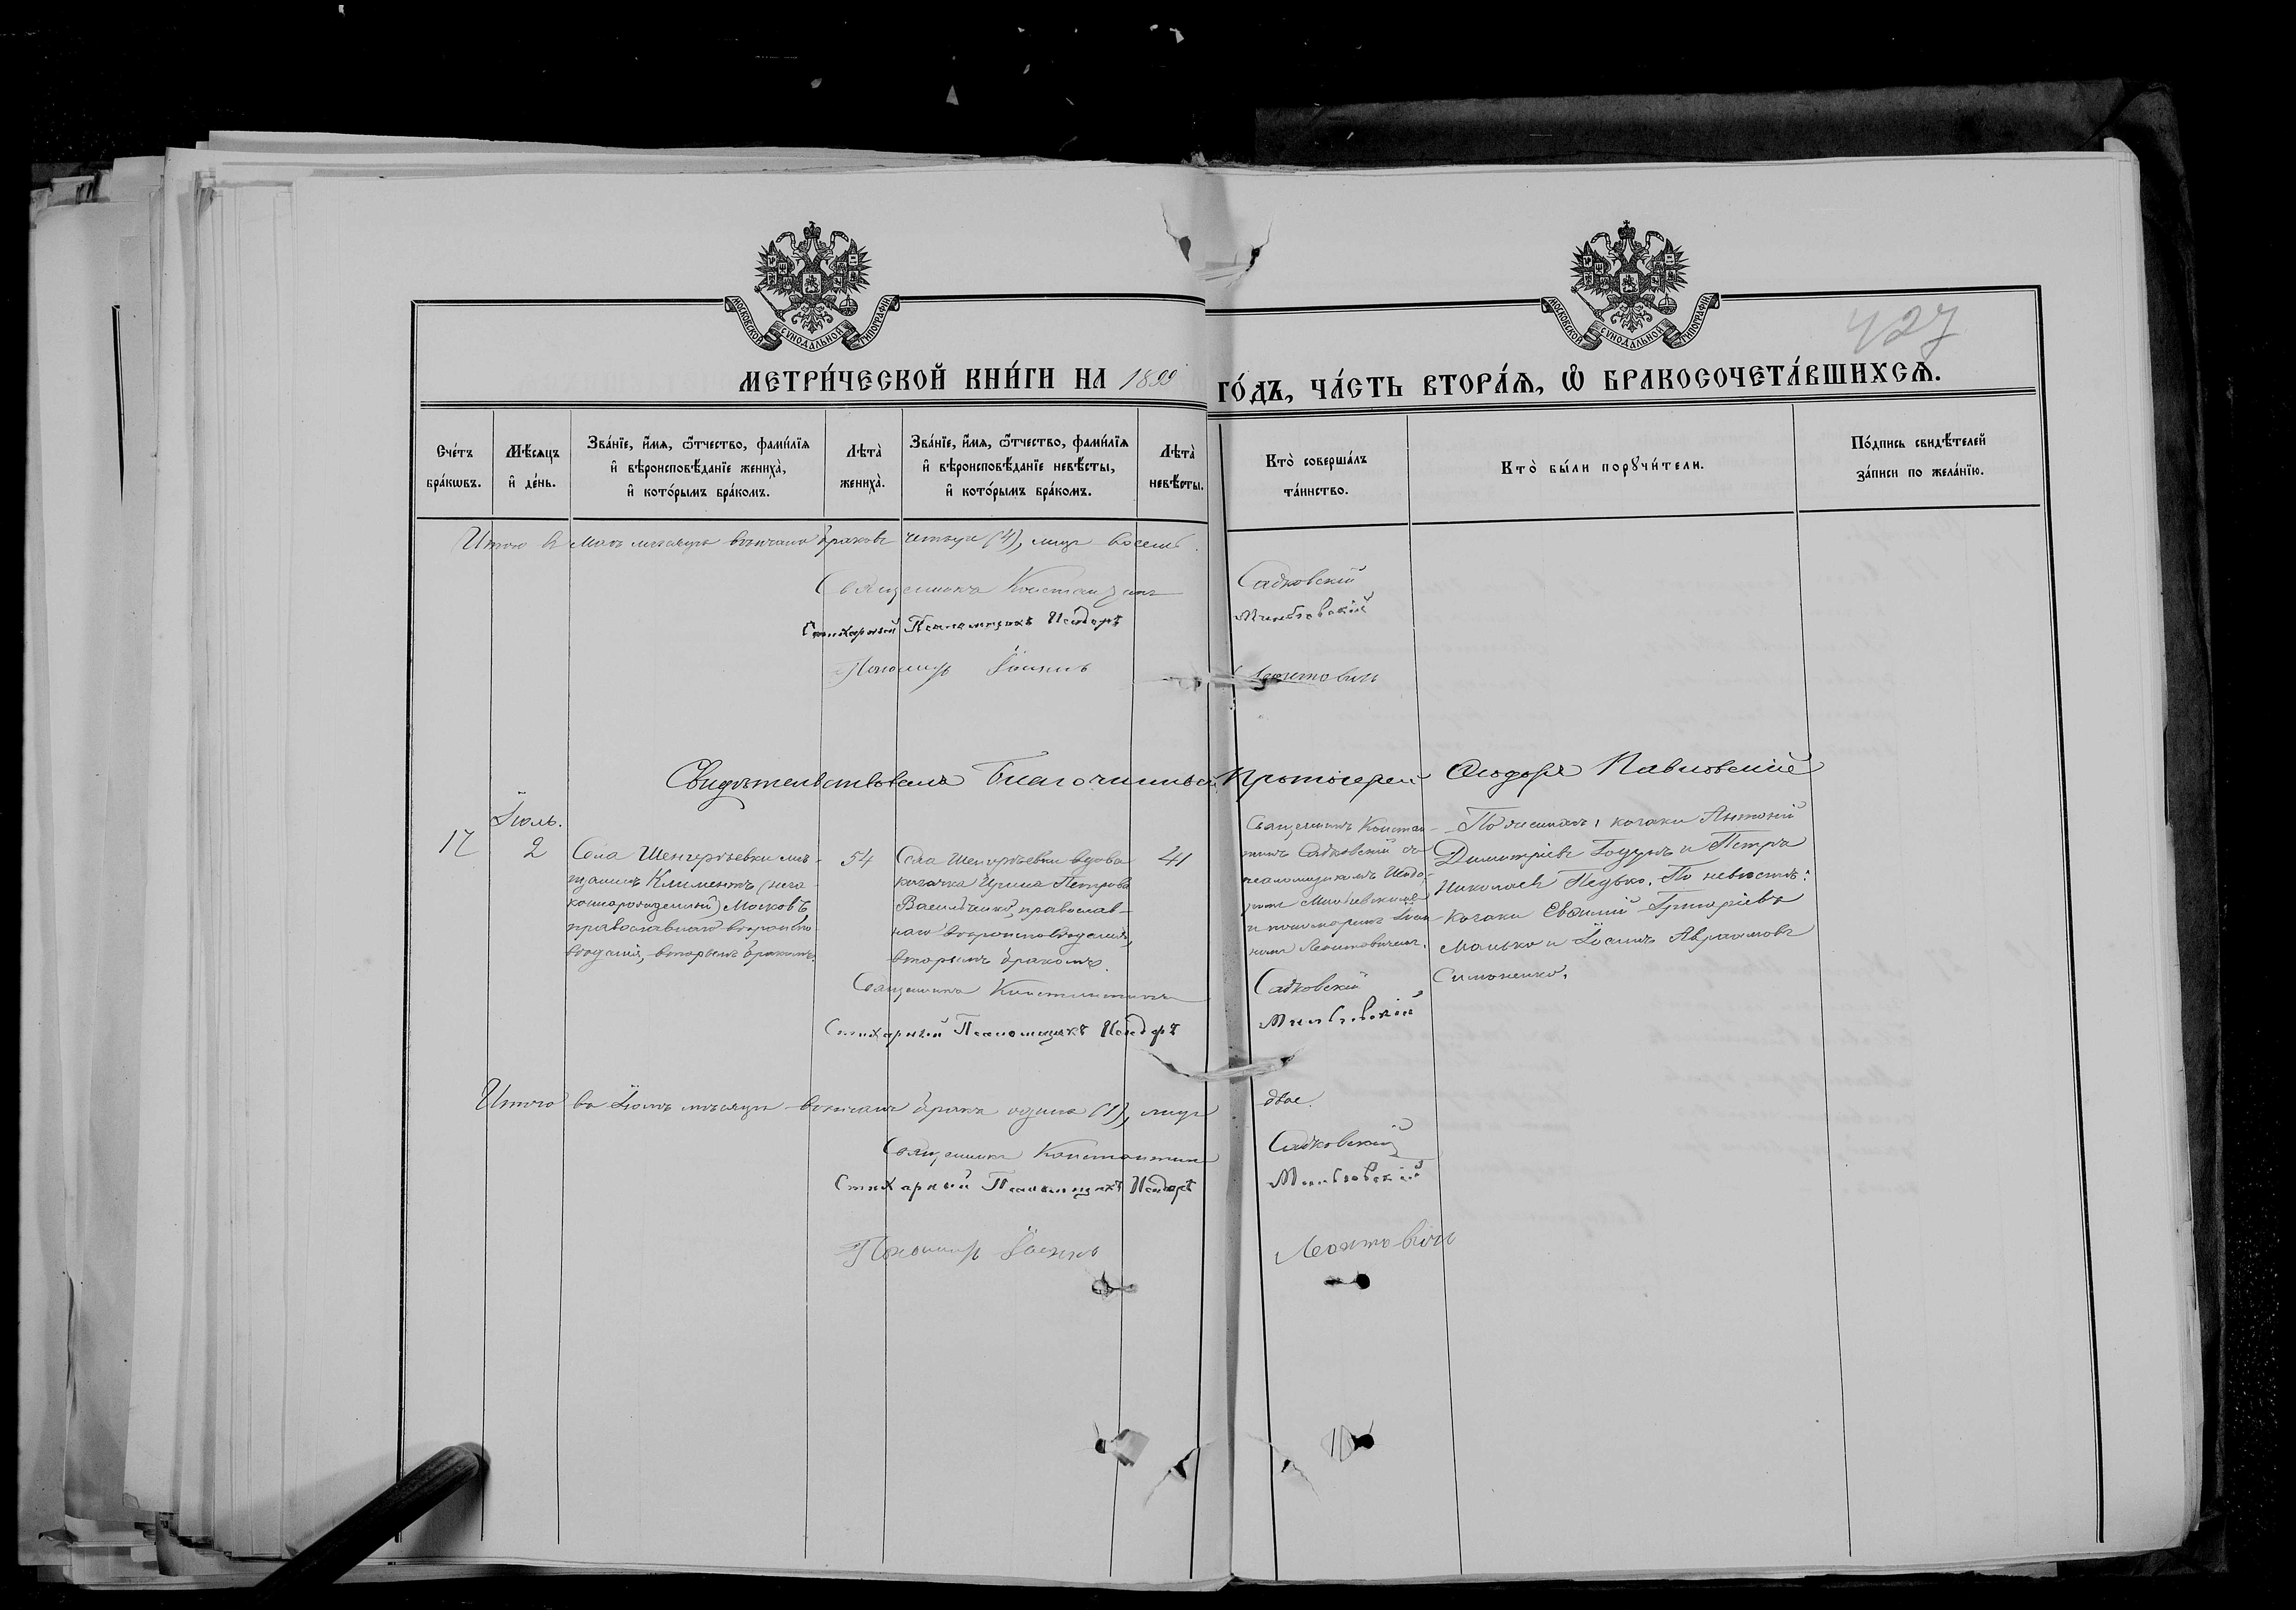 МОСКОВСКОЙ СУНОДАЛЬНОЙ ТИПОГРАФІИ
МОСКОВСКОЙ СУНОДАЛЬНОЙ ТИПОГРАФІИ
427
МЕТРИ́ЧЕСКОЙ КНИ́ГИ НА 1899 ГО́ДЪ, ЧА́СТЬ ВТОРА́Ѧ, Ѽ БРАКОСОЧЕТА́ВШИХСѦ.
Сче́тъ бра́кѡвъ.
Мѣ́сяцъ и҆ де́нь.
Зва́нїе, и҆́мѧ, ѻ҆́тчество, фами́лїѧ и҆ вѣроисповѣ́данїе жениха̀, и҆ кото́рымъ бра́комъ.
Лѣта̀ жениха̀.
Зва́нїе, и҆́мѧ, ѻ҆́тчество, фами́лїѧ и҆ вѣроисповѣ́данїе невѣ́сты, и҆ кото́рымъ бра́комъ.
Лѣта̀ невѣ́сты.
Кто̀ соверша́лъ та́инство.
Кто̀ бы́ли порꙋчи́тели.
По́дпись свидѣ́телей за́писи по жела́нїю.
Итого въ Маѣ мѣсяцѣ вѣнчано браковъ четыре (4), лицъ восемь.
Священникъ Константинъ Садковскій
Стихарный Псаломщикъ Исидоръ
Пономарь Іоаннъ Леонтовичъ
Свидѣтельствовалъ Благочинный Протоіерей Ѳеодоръ Павловскій
Іюль.
17
2
Села Шенгербевки мѣ-
щанинъ Климентъ
Московъ
православнаго вѣроиспо-
вѣданія, вторымъ бракомъ.
54
Села Шенгербевки вдова
козачка Ирина Петрова
Васильченко, православ-
наго вѣроисповѣданія,
вторымъ бракомъ.
41
Священникъ Констан-
тинъ Садковскій съ
псаломщикомъ Исидо-
ромъ
и пономаремъ Іоан-
номъ Леонтовичемъ.
По женихѣ: козаки Антоній
Димитріевъ Годунъ и Петръ
Николаевъ Педько. По невѣстѣ:
козаки Евѳимій Григоріевъ
Манько и Іосифъ Авраамовъ
Симоненко.
Священникъ Константинъ Садковскій
Стихарный Псаломщикъ Исидоръ
Итого въ Іюлѣ мѣсяцѣ вѣнчанъ бракъ одинъ (1), лицъ двое.
Священникъ Константинъ Садковскій
Стихарный Псаломщикъ Исидоръ
Пономарь Іоаннъ Леонтовичъ